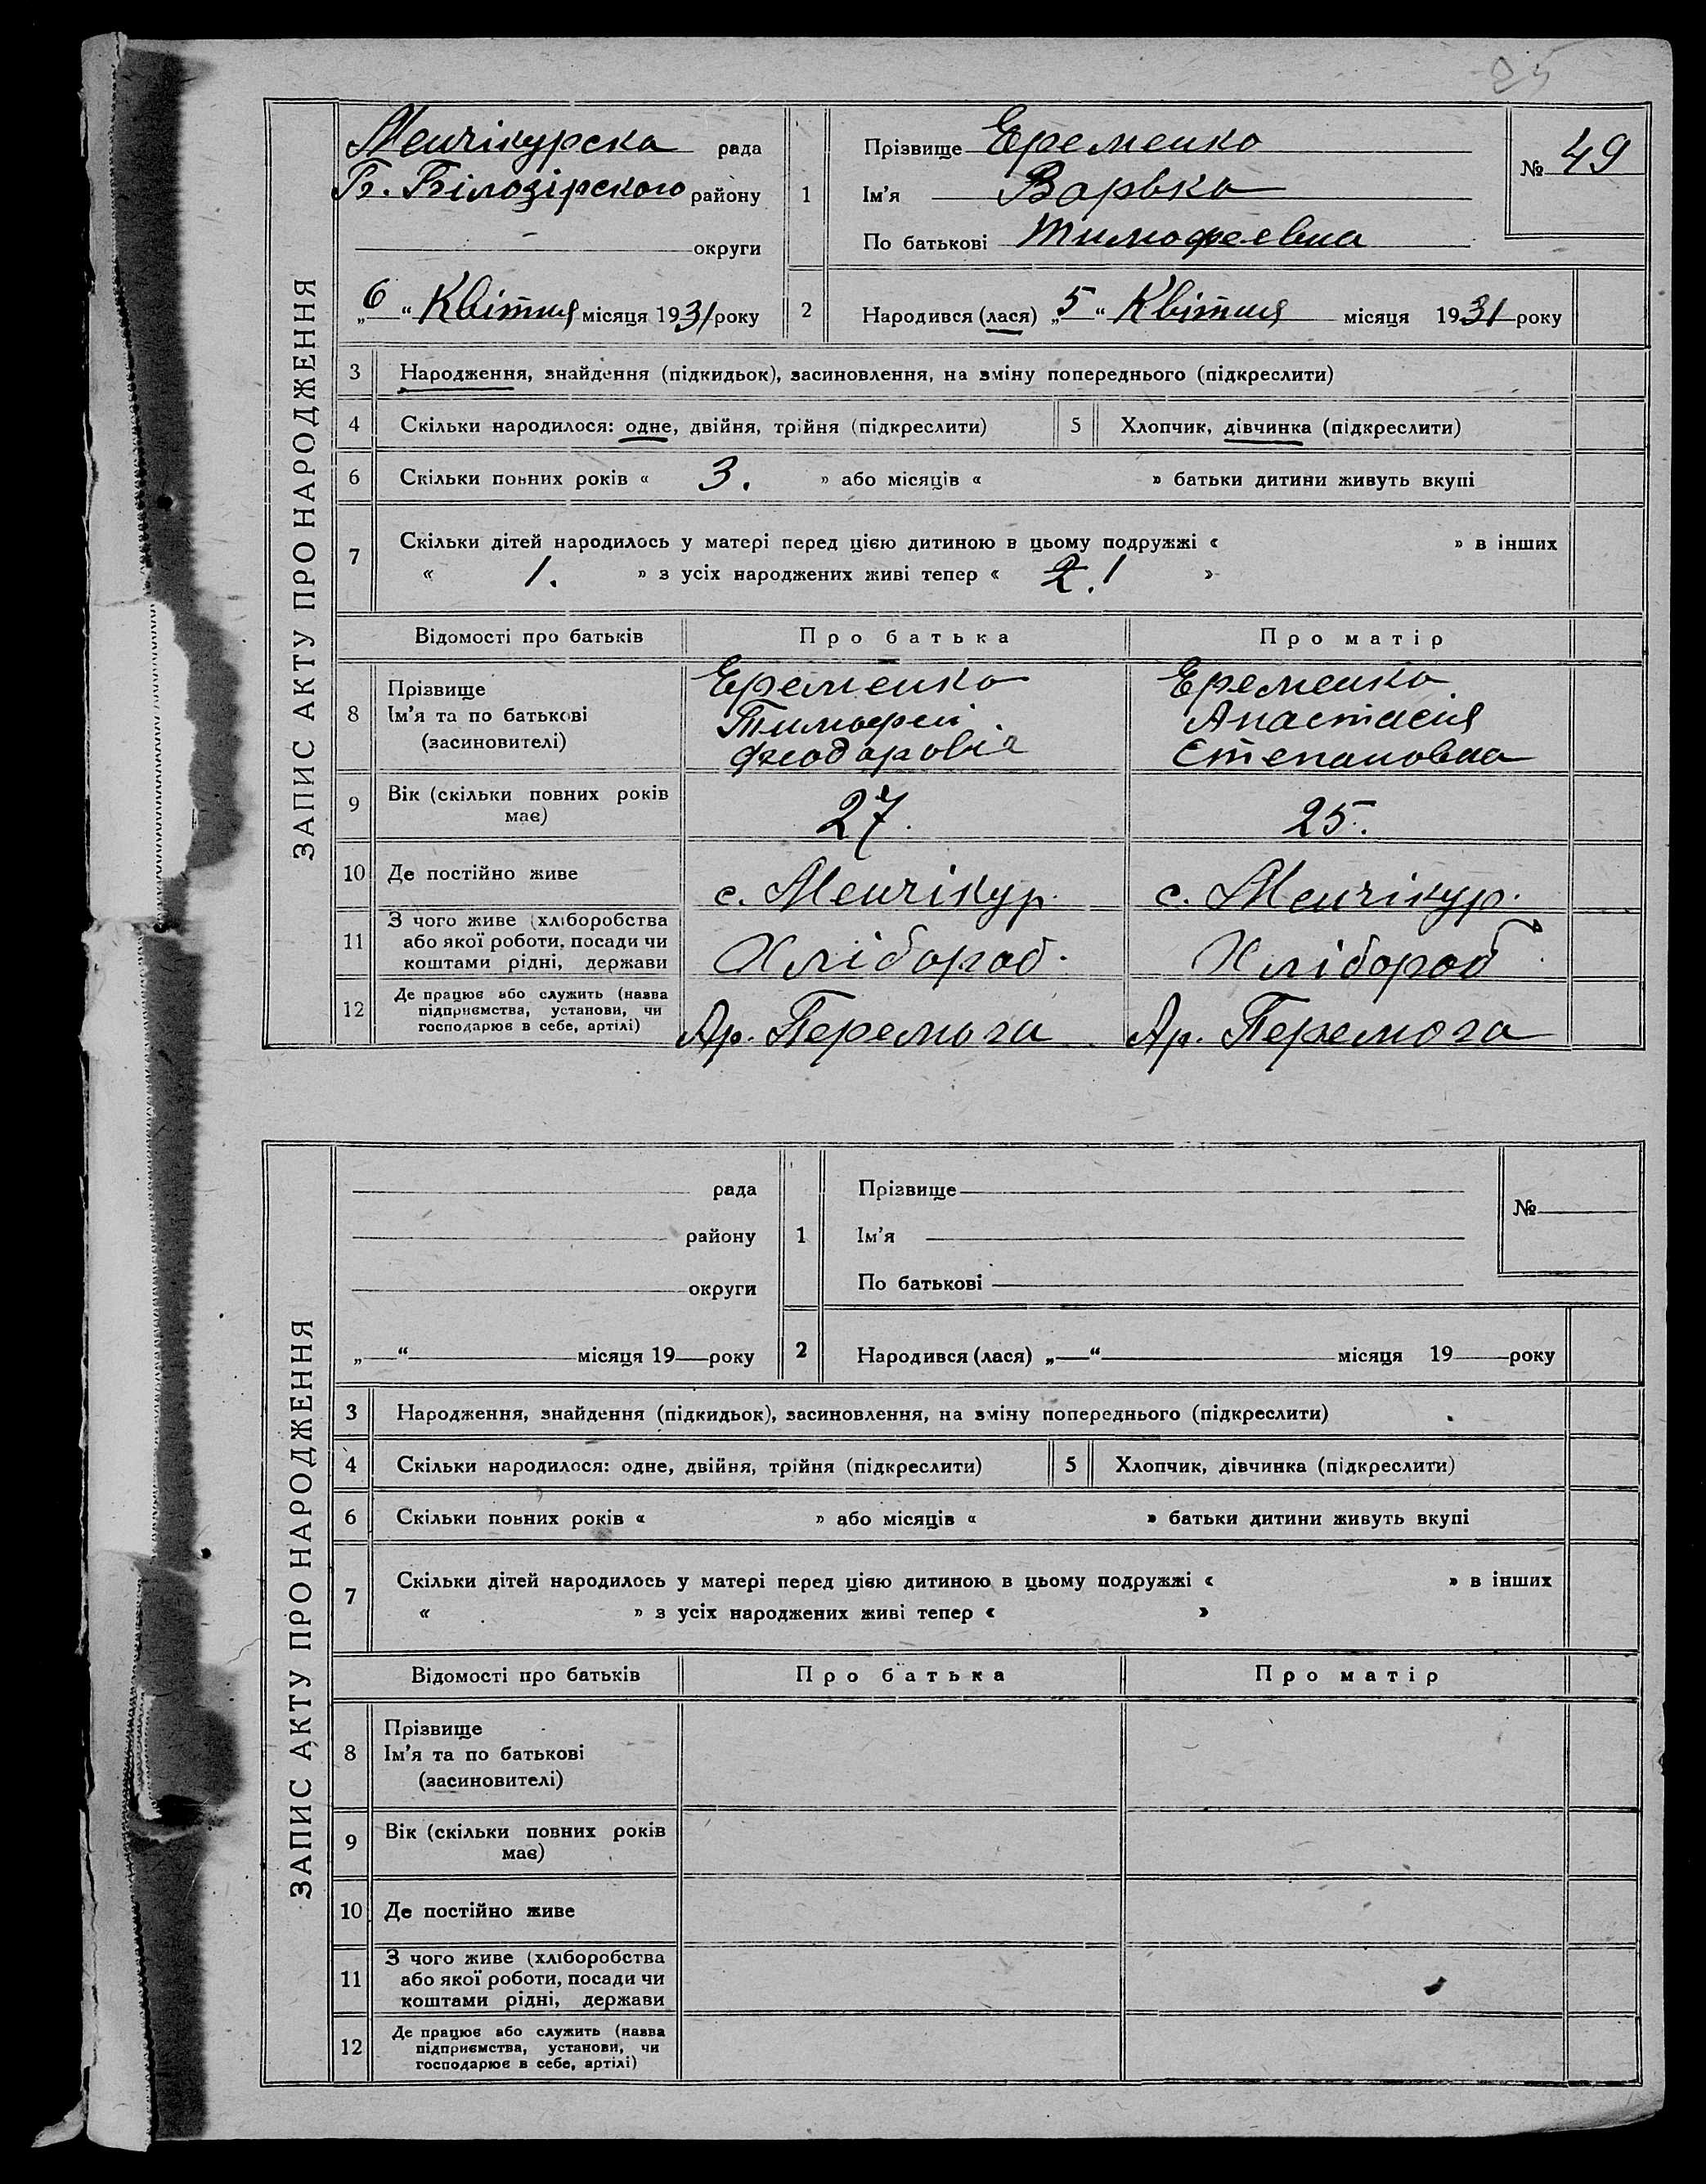 25
ЗАПИС АКТУ ПРО НАРОДЖЕННЯ
Менчікурска рада
Б. Білозірского району
- округи
„6“ Квітня місяця 1931 року
1
Прізвище Еременко
Ім'я Варвка
По батькові Тимофеевна
№ 49
2
Народився (лася) „5“ Квітня місяця 1931 року
3 Народження, знайдення (підкидьок), засиновлення, на зміну попереднього (підкреслити)
4 Скільки народилося: одне, двійня, трійня (підкреслити) 5 Хлопчик, дівчинка (підкреслити)
6 Скільки повних років « 3. » або місяців « » батьки дитини живуть вкупі
7 Скільки дітей народилось у матері перед цією дитиною в цьому подружжі « » в інших
« 1. » з усіх народжених живі тепер « 2. 1 »
Відомості про батьків Про батька Про матір
8 Прізвище Еременко Еременко
Ім'я та по батькові Тимофей Анастасия
(засновителі) Феодоровіч Степановна
9 Вік (скільки повних років має) 27. 25.
10 Де постійно живе с. Менчікур. с. Менчікур.
11 З чого живе (хліборобства
або якої роботи, посади чи
коштами рідні, держави Хлібороб. Хлібороб
12 Де працює або служить (назва
підприємства, установи, чи
господарює в себе, артілі) Ар. Перемога Ар. Перемога
ЗАПИС АКТУ ПРО НАРОДЖЕННЯ
рада
району
округи
„ “ місяця 19 року
1
Прізвище
Ім'я
По батькові
№
2
Народився (лася) „ “ місяця 19 року
3 Народження, знайдення (підкидьок), засиновлення, на зміну попереднього (підкреслити)
4 Скільки народилося: одне, двійня, трійня (підкреслити) 5 Хлопчик, дівчинка (підкреслити)
6 Скільки повних років « » або місяців « » батьки дитини живуть вкупі
7 Скільки дітей народилось у матері перед цією дитиною в цьому подружжі « » в інших
« » з усіх народжених живі тепер « »
Відомості про батьків Про батька Про матір
8 Прізвище
Ім'я та по батькові
(засиновителі)
9 Вік (скільки повних років
має)
10 Де постійно живе
11 З чого живе (хліборобства
або якої роботи, посади чи
коштами рідні, держави
12 Де працює або служить (назва
підприємства, установи, чи
господарює в себе, артілі)